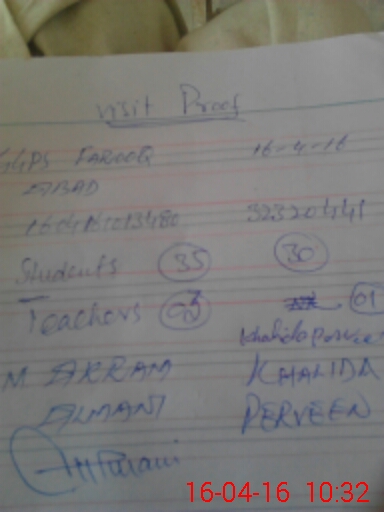 visit Proof
GGPS FAROOQ 16-4-16
ABAD
32320441
Students 35 30
Teachers 03 01
Khalida Perveen
M AKRAM KHALIDA
ALMANI PERVEEN
16-04-16 10:32